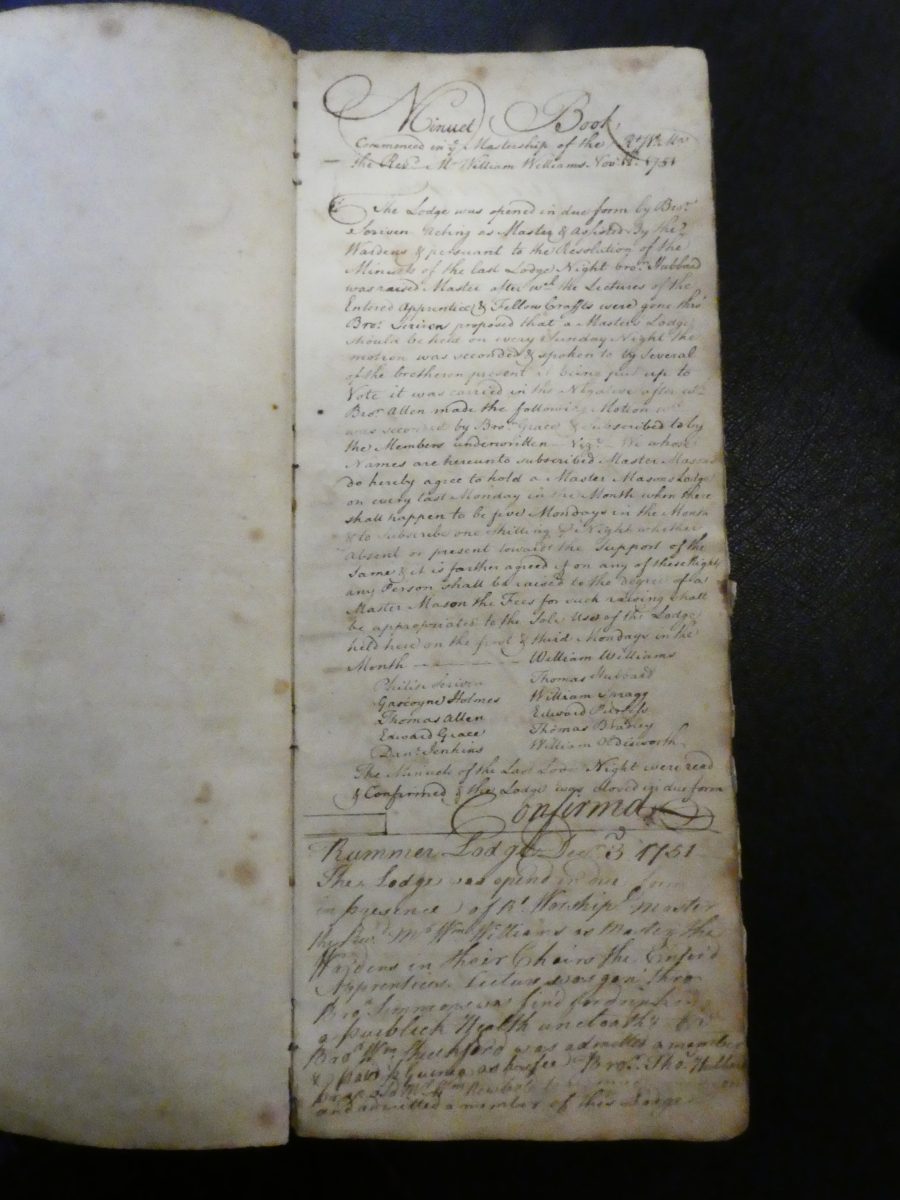 Minuet Book
Commenced in ye Mastership of the Rt Wl Mar
the Revd Mr William Williams Novr 1751
The Lodge was opened in due form by Bror
Scriven Acting as Master & Assisted By the
Wardens & persuant to the Resolution of the
Minuets of the last Lodge Night bror Hubbard
was raised Master after wch the Lectures of the
Entered Apprentice & Fellow Crafts were gone thro'
Bror Scriven proposed that a Masters Lodge
should be held on every Sunday Night the
motion was seconded & spoken to by several
of the bretheren present it being put up to
Vote it was carried in the Negative after wch
Bror Allen made the following Motion wch
was seconded by Bror Grace & subscribed to by
the Members underwritten Vizt We whose
Names are hereunto subscribed Master Masons
do hereby agree to hold a Master Masons Lodge
on every last Monday in the Month when there
shall happen to be five Mondays in the Month
& to subscribe one shilling pr Night whether
absent or present towards the Support of the
Same & it is farther agreed if on any of these Nights
any Person shall be raised to the Degree of a
Master Mason the Fees for such raising shall
be appropriated to the Sole Use of the Lodge
held here on the first & third Mondays in the
Month
William Williams
Philip Scriven Thomas Hubbard
Gascoyne Holmes William Spragg
Thomas Allen Edward
Edward Grace Thomas
Danl Jenkins William
The Minuets of the Last Lodge Night were read
& Confirmed & the Lodge was closed in due form
Confirmd
Rummer Lodge Decr 3 1751
The Lodge was opend in due form
in presence of Rt Worshipl Master
the Revd Mr Wm Williams as Master the
Wardens in their Chairs the Enter'd
Apprentices Lecture was gon thro
Bror Simmons was find for drinking
a publick Health
Bror Wm was admitted a member
& paid a Guinea as his fee Bror Tho. Hubbard
and admitted a member of this Lodge